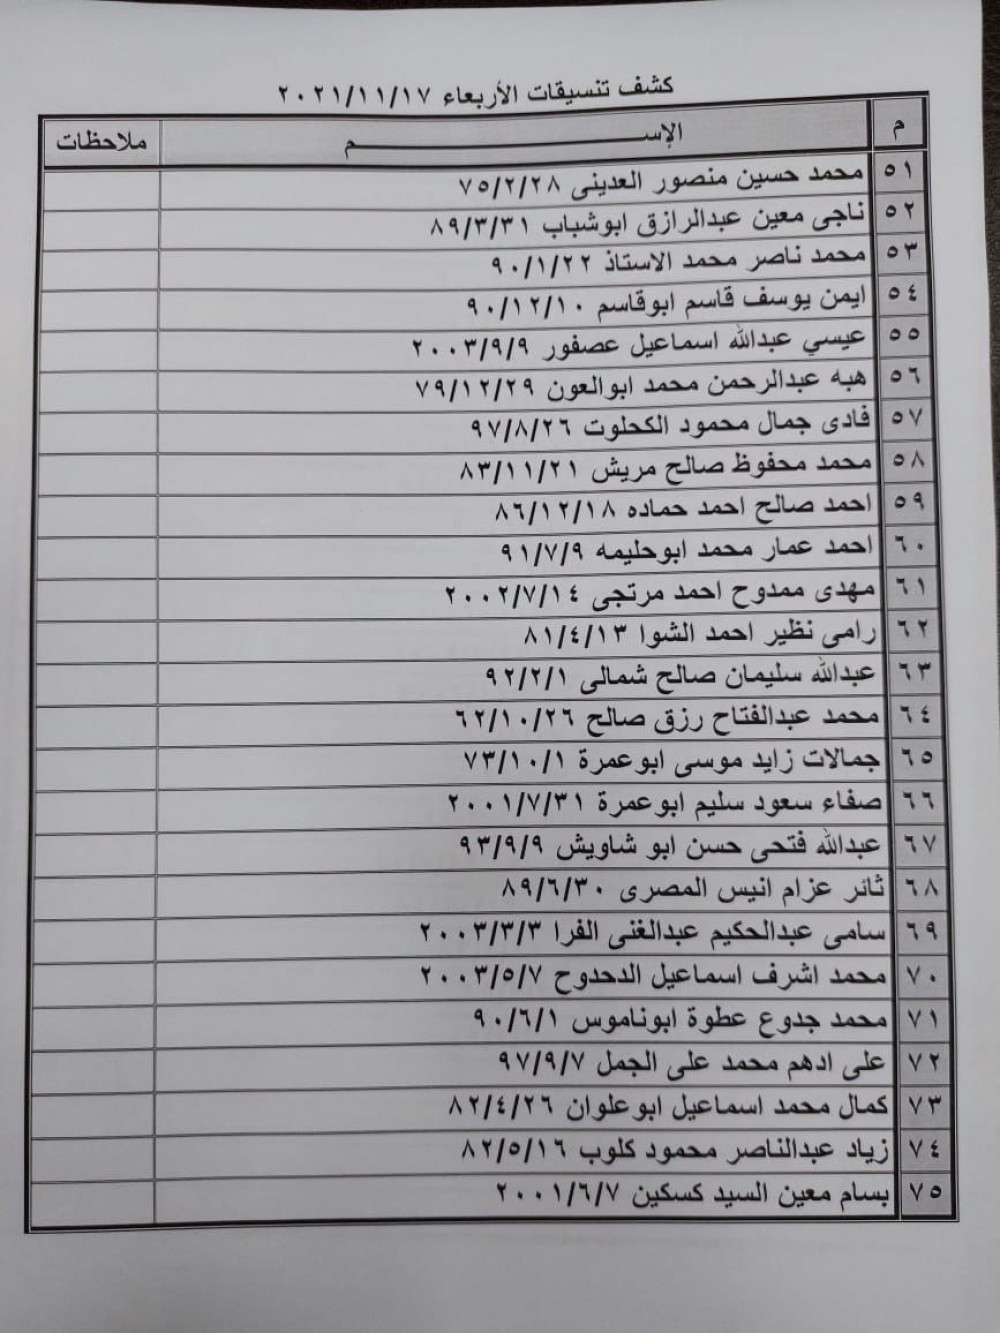 كشف تنسيقات الأربعاء ٢٠٢١/١١/١٧
م الإســـــــــم ملاحظات
٥١ محمد حسين منصور العدينى ٧٥/٢/٢٨
٥٢ ناجى معين عبدالرازق ابوشباب ٨٩/٣/٣١
٥٣ محمد ناصر محمد الاستاذ ٩٠/١/٢٢
٥٤ ايمن يوسف قاسم ابوقاسم ٩٠/١٢/١٠
٥٥ عيسي عبدالله اسماعيل عصفور ٢٠٠٣/٩/٩
٥٦ هبه عبدالرحمن محمد ابوالعون ٧٩/١٢/٢٩
٥٧ فادى جمال محمود الكحلوت ٩٧/٨/٢٦
٥٨ محمد محفوظ صالح مريش ٨٣/١١/٢١
٥٩ احمد صالح احمد حماده ٨٦/١٢/١٨
٦٠ احمد عمار محمد ابوحليمه ٩١/٧/٩
٦١ مهدى ممدوح احمد مرتجى ٢٠٠٢/٧/١٤
٦٢ رامى نظير احمد الشوا ٨١/٤/١٣
٦٣ عبدالله سليمان صالح شمالى ٩٢/٢/١
٦٤ محمد عبدالفتاح رزق صالح ٦٢/١٠/٢٦
٦٥ جمالات زايد موسى ابوعمرة ٧٣/١٠/١
٦٦ صفاء سعود سليم ابوعمرة ٢٠٠١/٧/٣١
٦٧ عبدالله فتحى حسن ابو شاويش ٩٣/٩/٩
٦٨ ثائر عزام انيس المصرى ٨٩/٦/٣٠
٦٩ سامى عبدالحكيم عبدالغنى الفرا ٢٠٠٣/٣/٣
٧٠ محمد اشرف اسماعيل الدحدوح ٢٠٠٣/٥/٧
٧١ محمد جدوع عطوة ابوناموس ٩٠/٦/١
٧٢ على ادهم محمد على الجمل ٩٧/٩/٧
٧٣ كمال محمد اسماعيل ابوعلوان ٨٢/٤/٢٦
٧٤ زياد عبدالناصر محمود كلوب ٨٢/٥/١٦
٧٥ بسام معين السيد كسكين ٢٠٠١/٦/٧